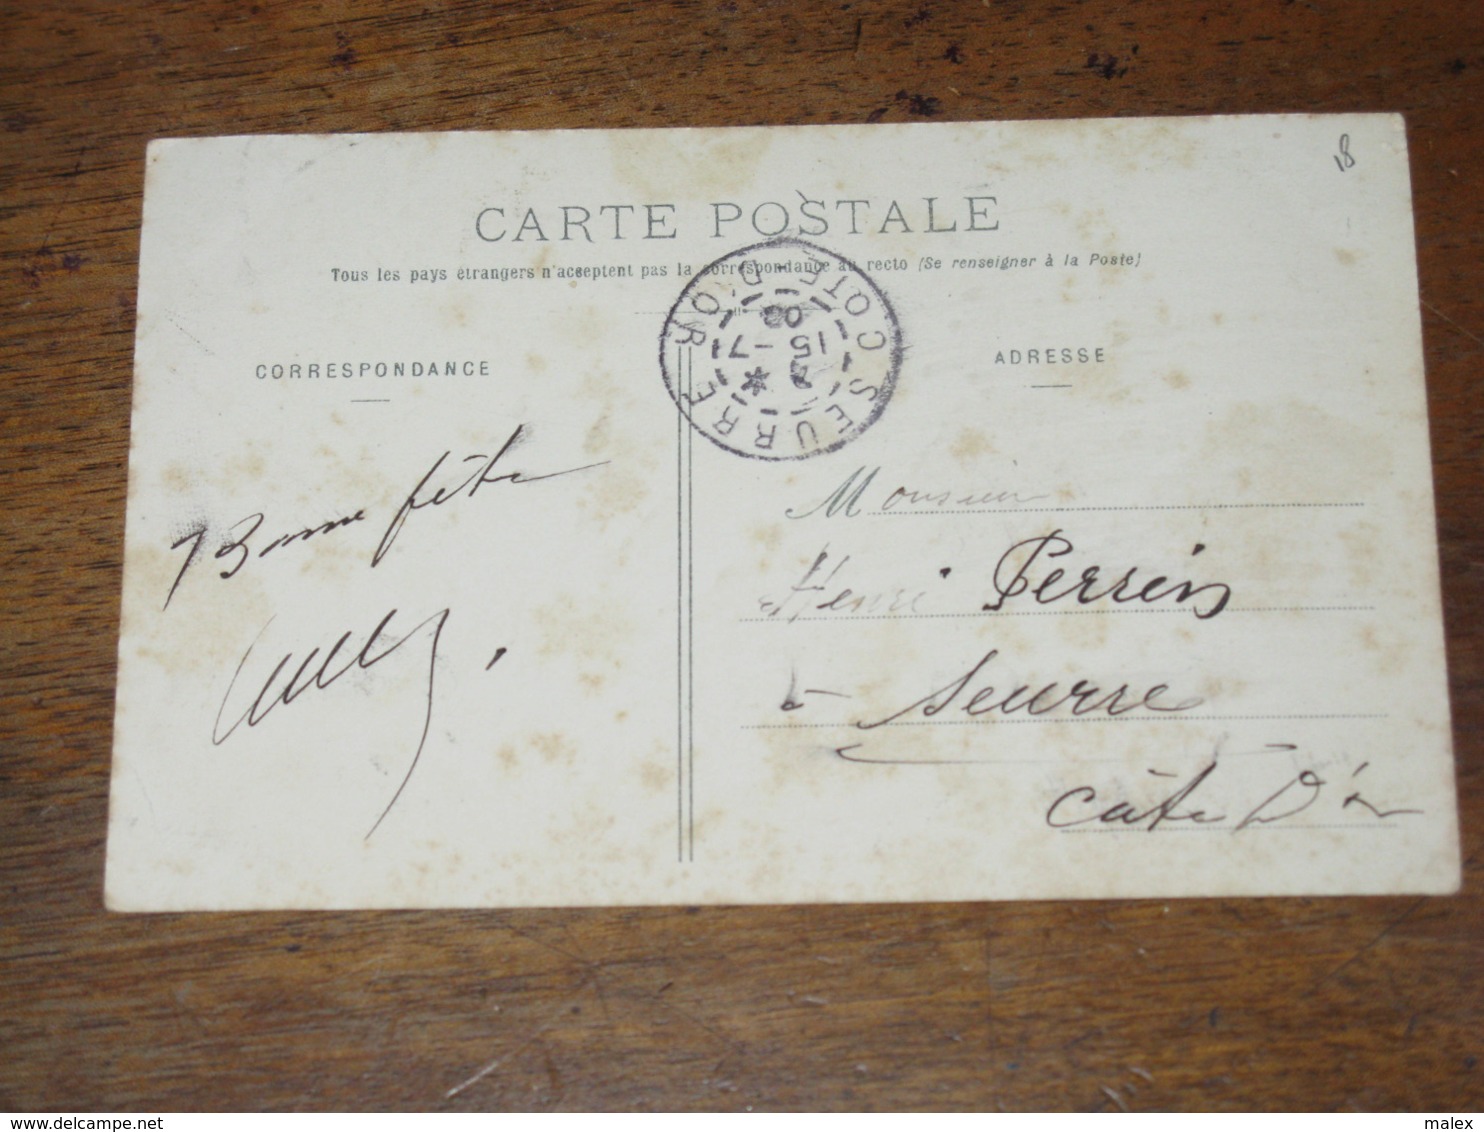 18
CARTE POSTALE
Tous les pays étrangers n'acceptent pas la correspondance au recto (Se renseigner à la Poste)
SEURRE COTE D'OR
15 -7
CORRESPONDANCE
ADRESSE
Bonne fête
Monsieur
Henri Perrin
à Seurre
Côte D'or
www.delcampe.net
malex